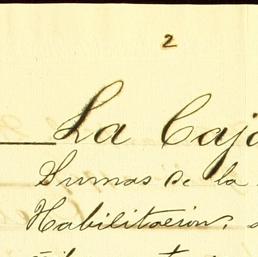 2
La Caja
Sumas de la
Habilitacion,